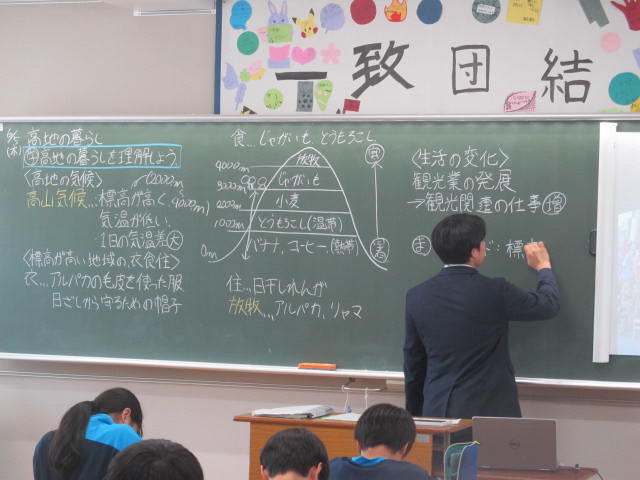 一致団結
高地の暮らし
高地の暮らしを理解しよう
〈高地の気候〉
高山気候…標高が高く
気温が低い
1日の気温差大
〈標高が高い地域の衣食住〉
衣…アルパカの毛皮を使った服
日ざしから守るための帽子
食…じゃがいも、とうもろこし
4000m
放牧
3000m
じゃがいも
2000m
小麦
1000m
とうもろこし(温帯)
0m
バナナ、コーヒー(熱帯)
住…日干しれんが
放牧…アルパカ、リャマ
〈生活の変化〉
観光業の発展
→観光関連の仕事増